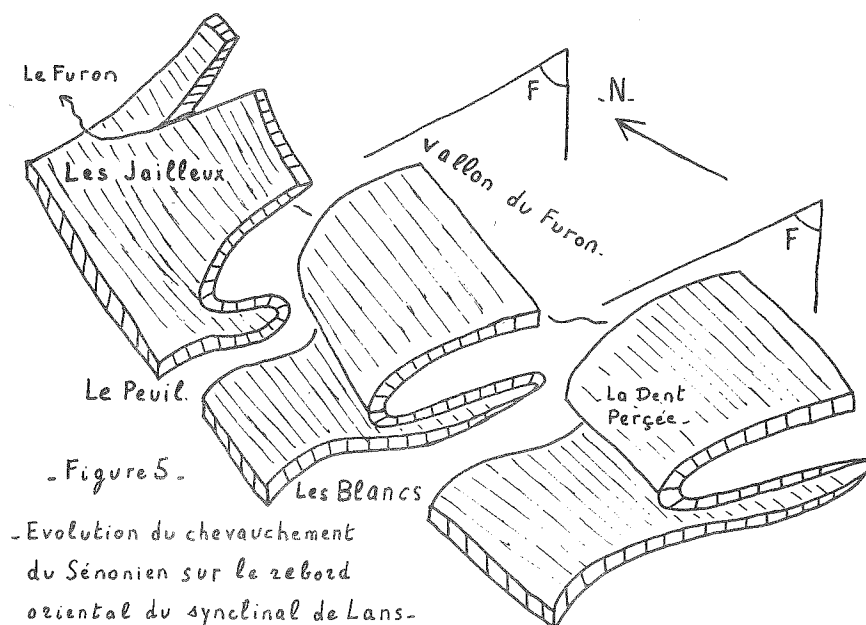 Le Furon
F
_N_
Les Jailleux
Vallon du Furon.
F
Le Peuil.
La Dent
Perçée_
_Figure 5_
Les Blancs
_Evolution du chevauchement
du Sénonien sur le rebord
oriental du synclinal de Lans_